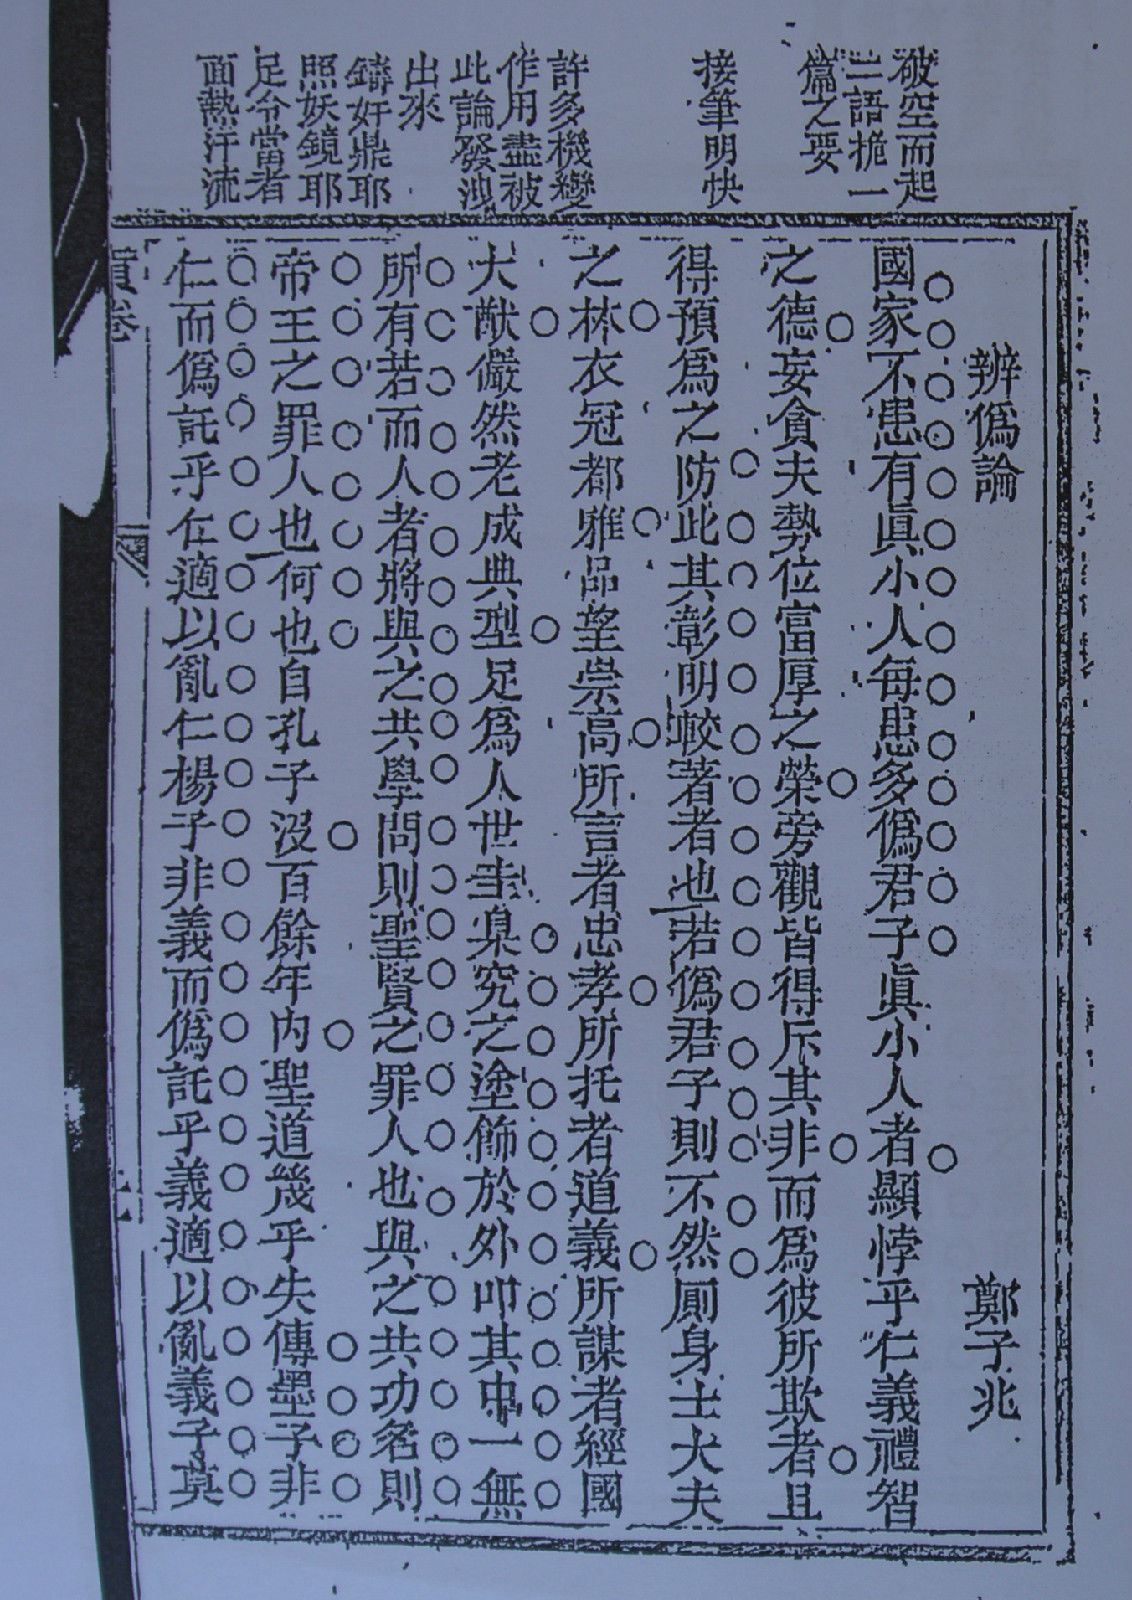 破空而起
二語挽一
篇之要
接筆明快
許多機變
作用盡被
此論發洩
出來
鑄奸鼎耶
照妖鏡耶
足令當者
面熱汗流
辨僞論
鄭子兆
國家不患有眞小人每患多僞君子眞小人者顯悖乎仁義禮智
之德妄貪夫勢位富厚之榮旁觀皆得斥其非而爲彼所欺者且
得預爲之防此其彰明較著者也若僞君子則不然厠身士大夫
之林衣冠都雅品望崇高所言者忠孝所托者道義所謀者經國
大猷儼然老成典型足爲人世圭臬究之塗飾於外叩其中一無
所有若而人者將與之共學問則聖賢之罪人也與之共功名則
帝王之罪人也何也自孔子沒百餘年內聖道幾乎失傳墨子非
仁而僞託乎仁適以亂仁楊子非義而僞託乎義適以亂義子莫
卷